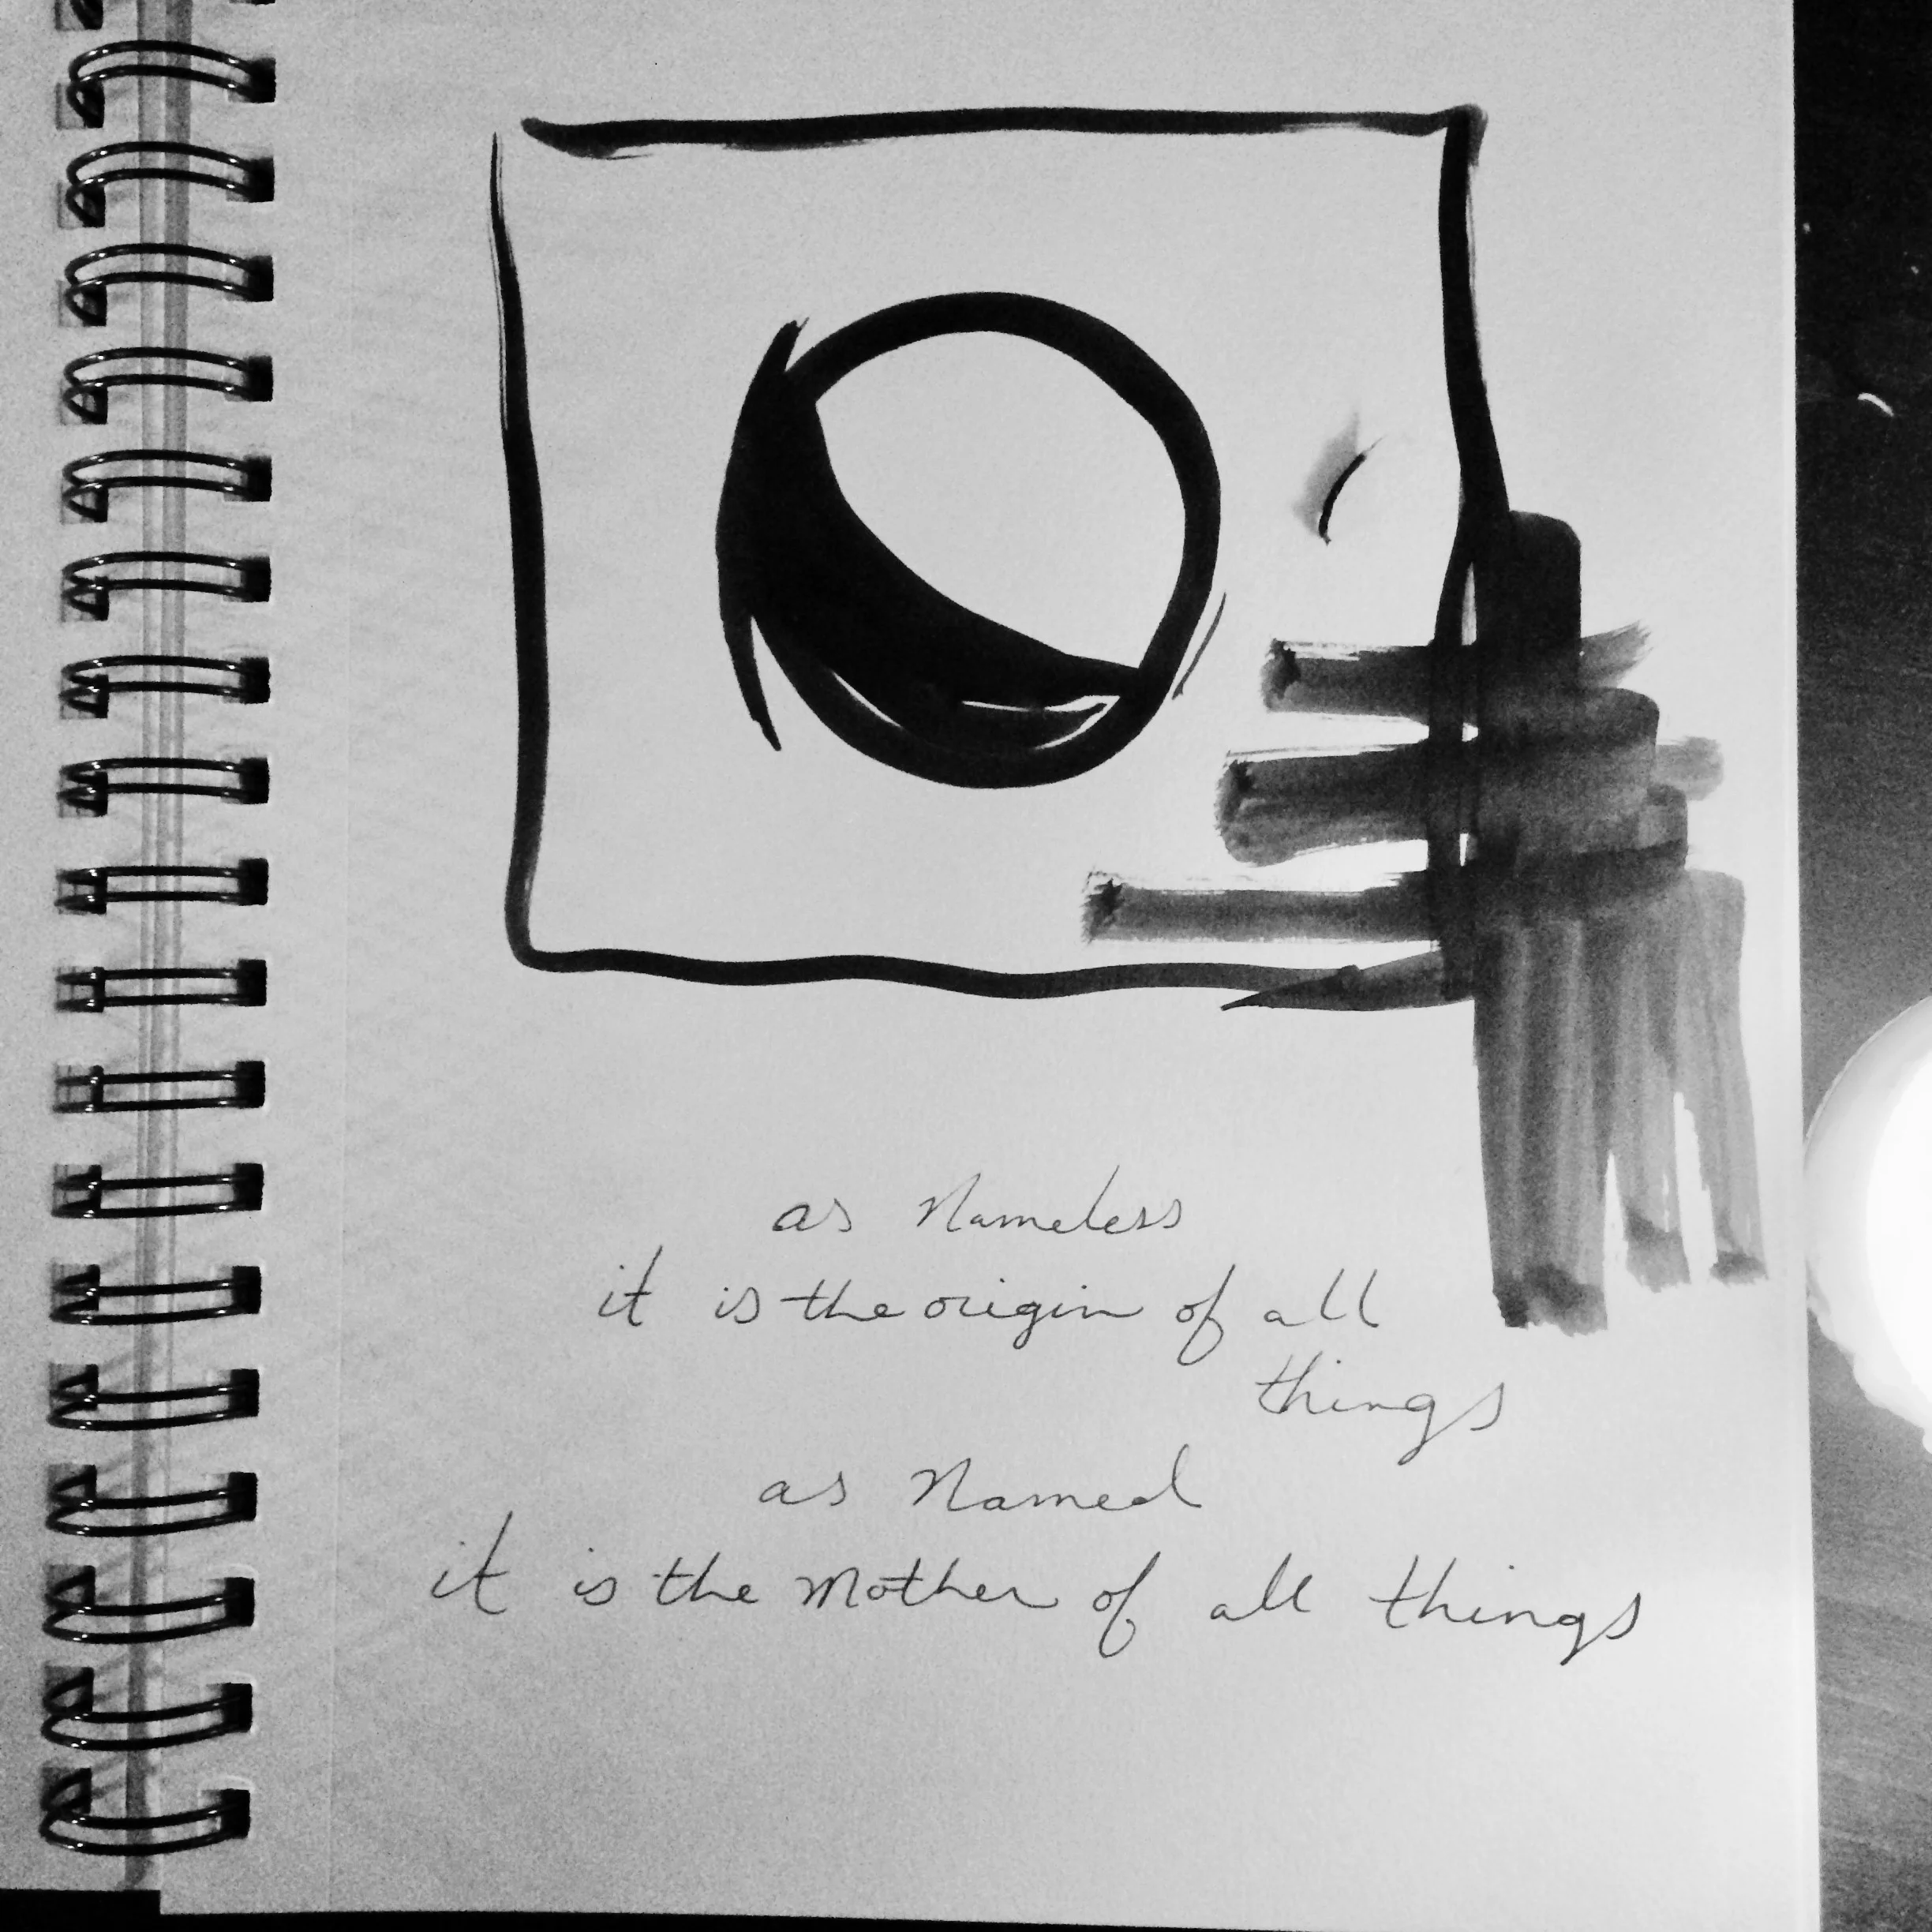 as Nameless
it is the origin of all
things
as Named
it is the Mother of all things